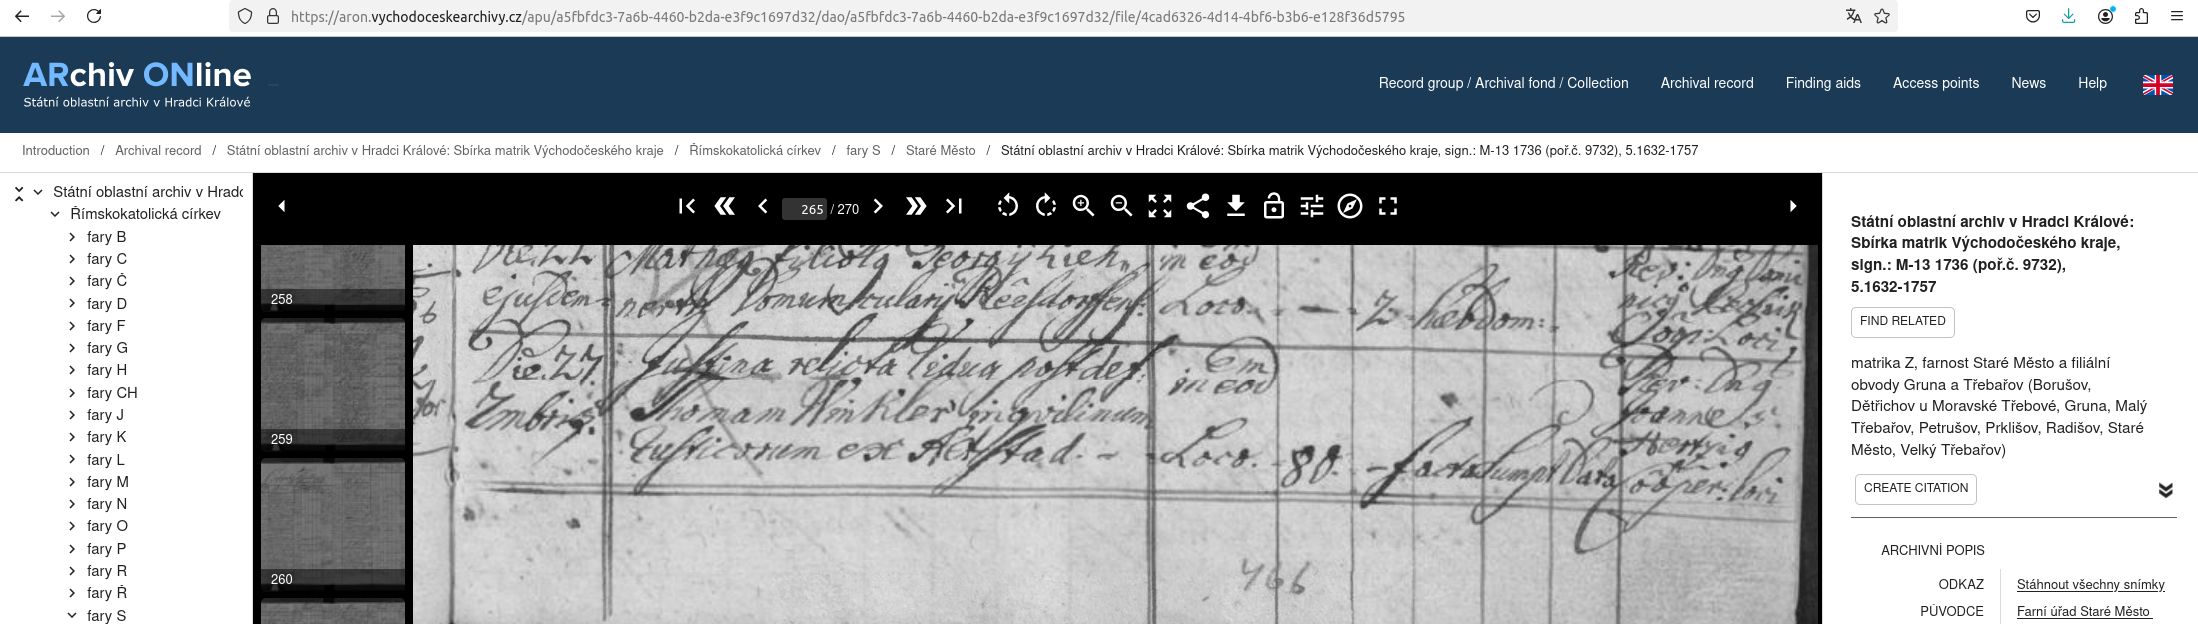 https://aron.vychodoceskearchivy.cz/apu/a5fbfdc3-7a6b-4460-b2da-e3f9c1697d32/dao/a5fbfdc3-7a6b-4460-b2da-e3f9c1697d32/file/4cad6326-4d14-4bf6-b3b6-e128f36d5795
ARchiv ONline
Státní oblastní archiv v Hradci Králové
Record group / Archival fond / Collection
Archival record
Finding aids
Access points
News
Help
Introduction / Archival record / Státní oblastní archiv v Hradci Králové: Sbírka matrik Východočeského kraje / Římskokatolická církev / fary S / Staré Město / Státní oblastní archiv v Hradci Králové: Sbírka matrik Východočeského kraje, sign.: M-13 1736 (poř.č. 9732), 5.1632-1757
Státní oblastní archiv v Hradc
Římskokatolická církev
fary B
fary C
fary Č
fary D
fary F
fary G
fary H
fary CH
fary J
fary K
fary L
fary M
fary N
fary O
fary P
fary R
fary Ř
fary S
265 / 270
258
259
260
Die 22 Mathæg filiolg Georgij
ejusdem Domuncularij
in eod
Loco. 2 hebdom:
Die. 27. Justina relicta Vidua post def:
Xmbris. Thomam Winkler inqvilinum
Rusticorum ex Altstad.
in eod
Loco. 80.
Joannes
Hertzig
Cooper: loci
466
Státní oblastní archiv v Hradci Králové:
Sbírka matrik Východočeského kraje,
sign.: M-13 1736 (poř.č. 9732),
5.1632-1757
FIND RELATED
matrika Z, farnost Staré Město a filiální
obvody Gruna a Třebařov (Borušov,
Dětřichov u Moravské Třebové, Gruna, Malý
Třebařov, Petrušov, Prklišov, Radišov, Staré
Město, Velký Třebařov)
CREATE CITATION
ARCHIVNÍ POPIS
ODKAZ Stáhnout všechny snímky
PŮVODCE Farní úřad Staré Město